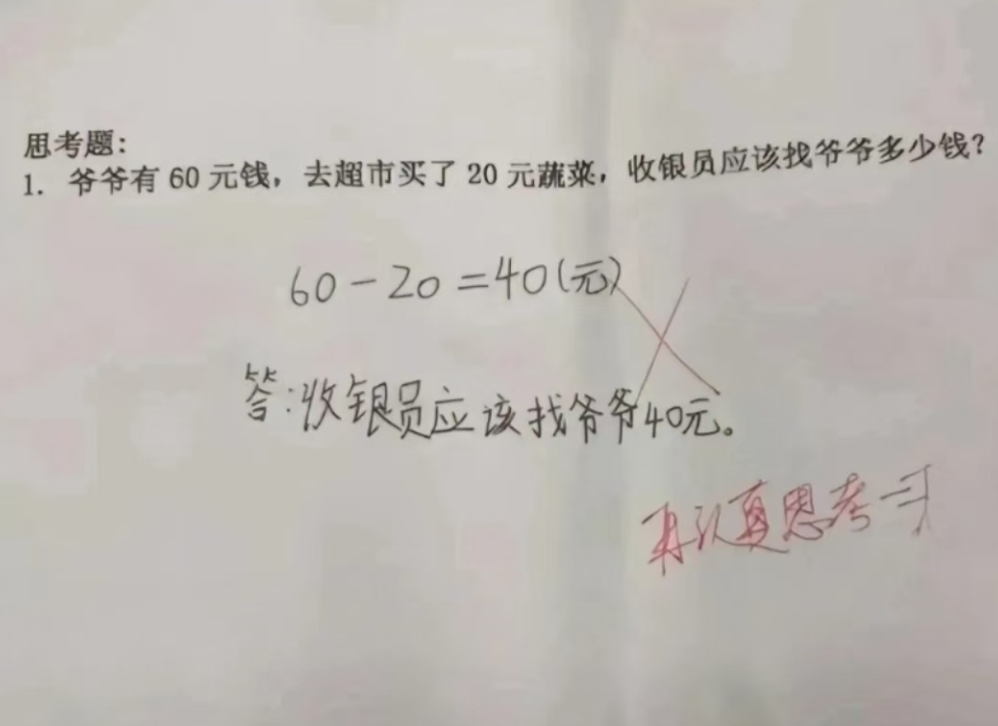 思考题：
1. 爷爷有 60 元钱，去超市买了 20 元蔬菜，收银员应该找爷爷多少钱？
60-20=40(元)
答：收银员应该找爷爷40元。
再认真思考一下